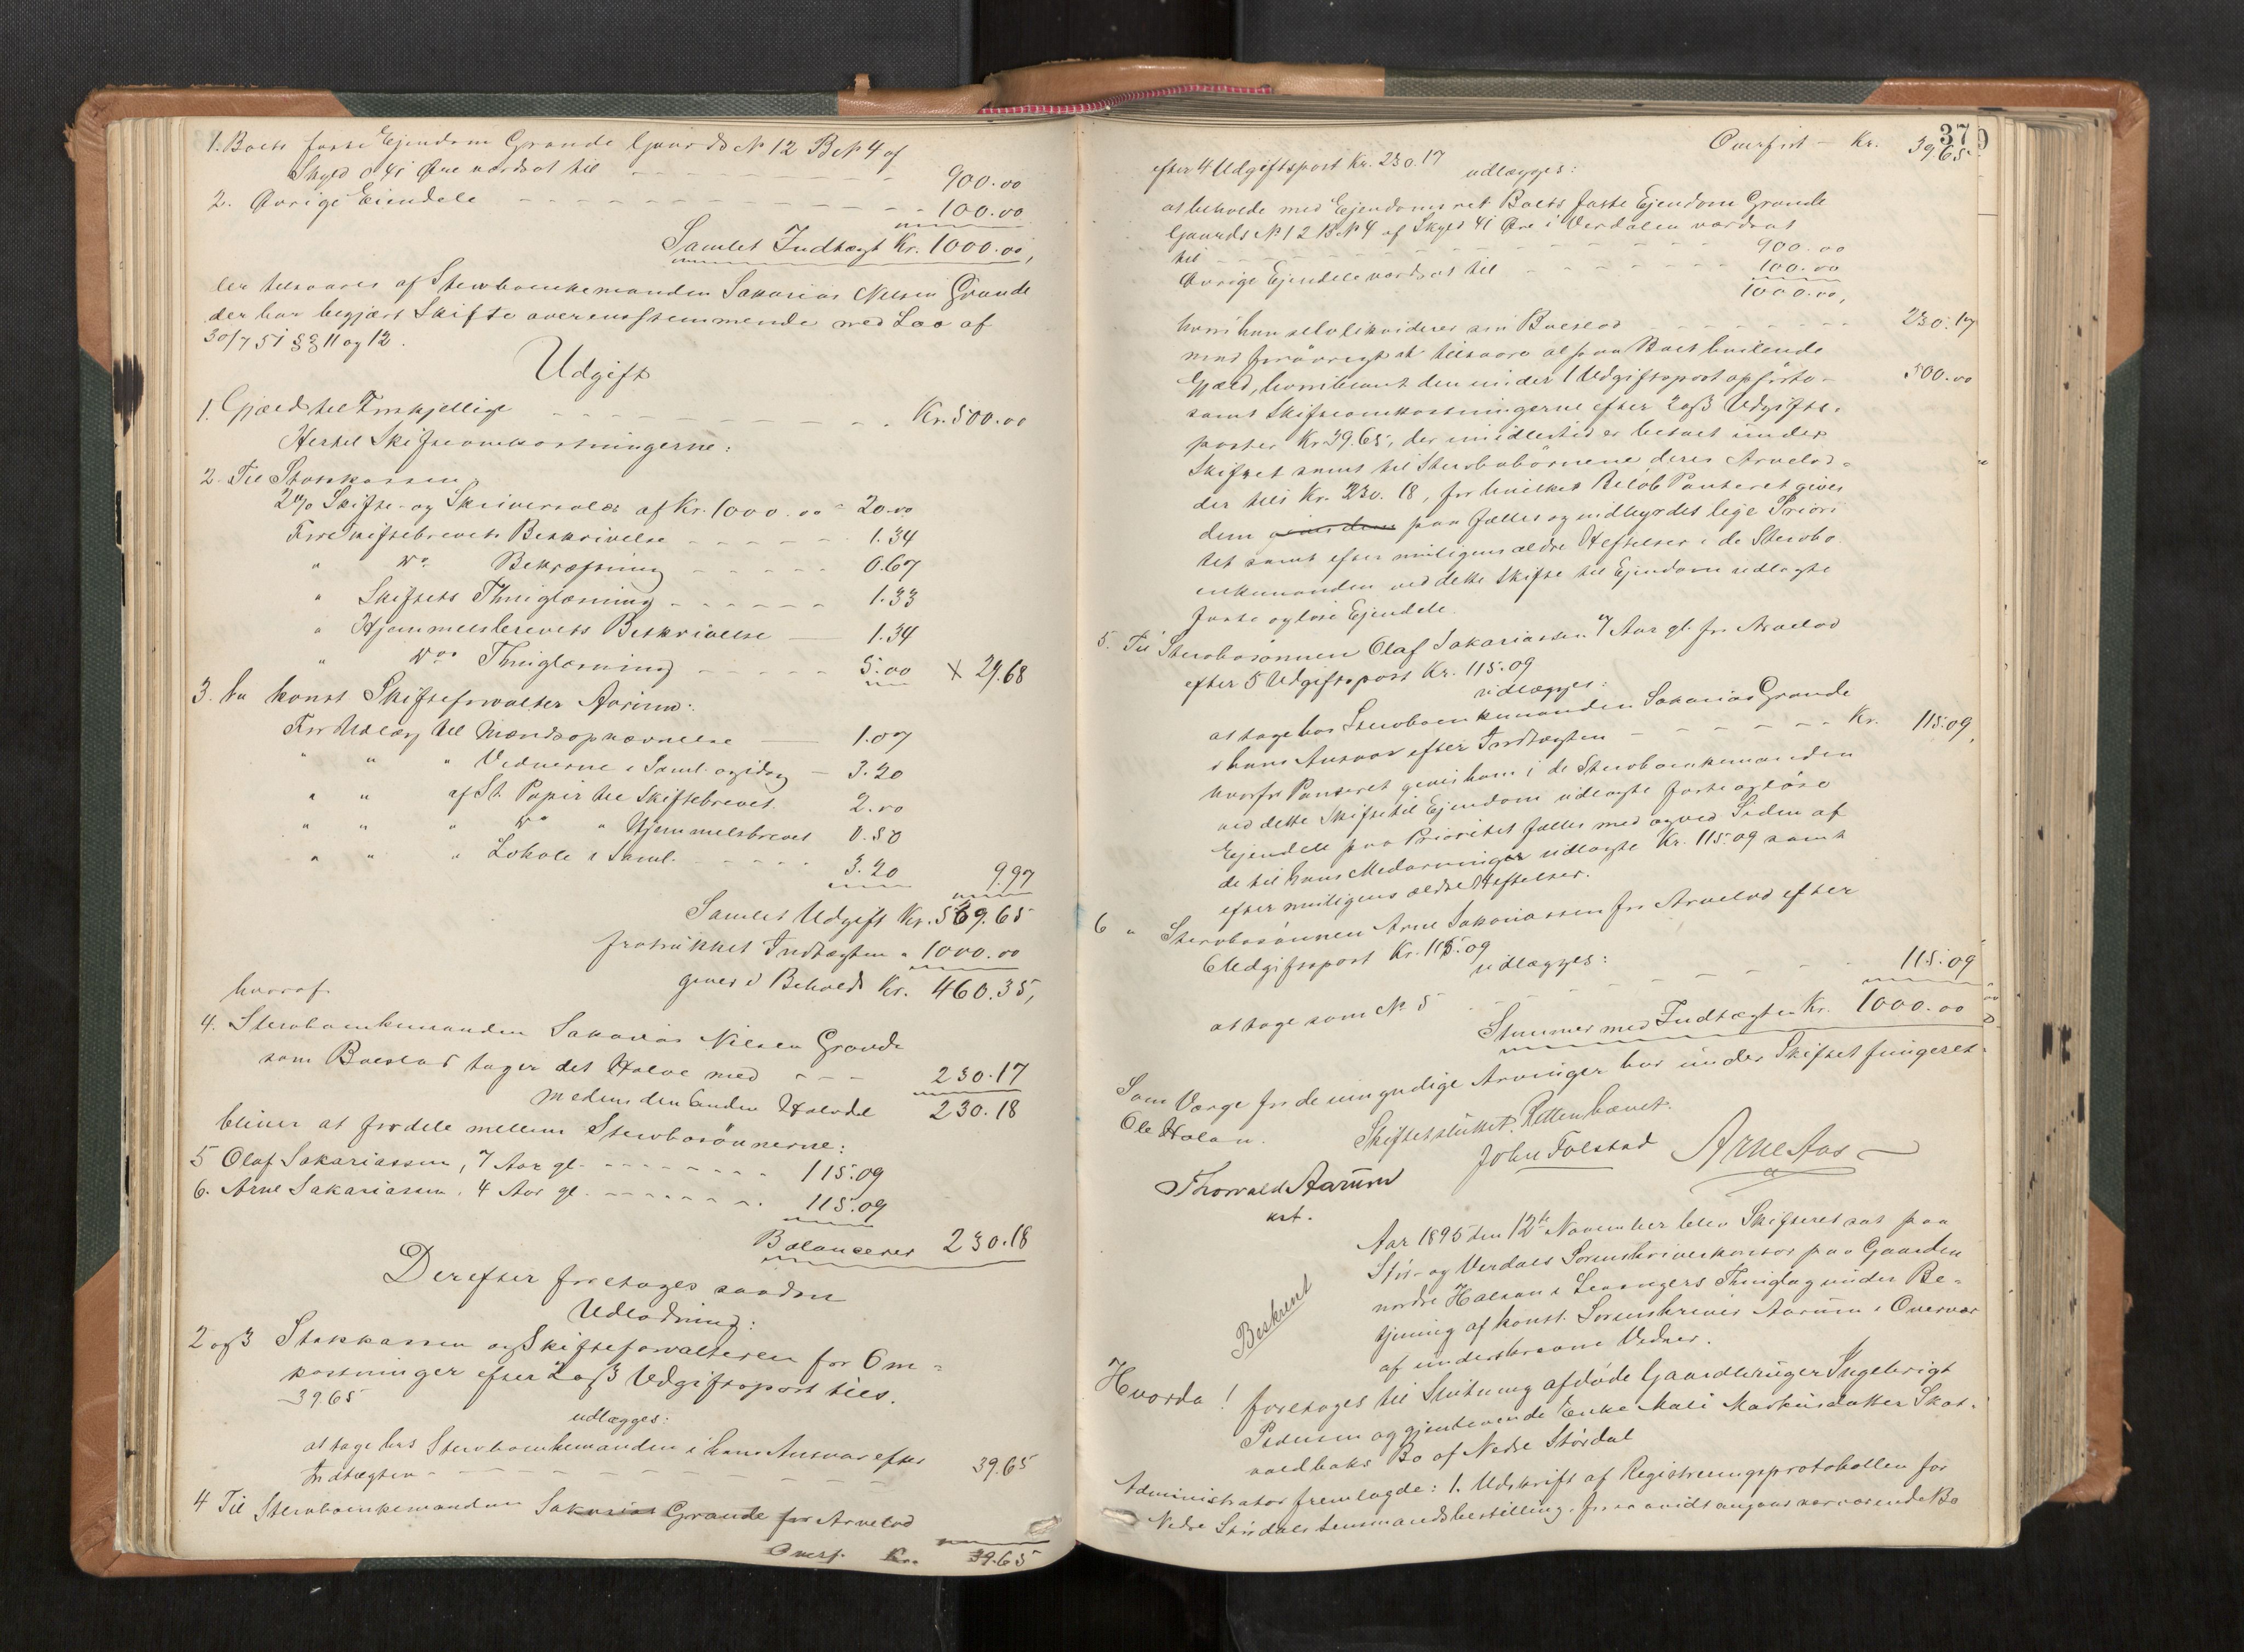 1. Boets faste Ejendom Grande Gaards No 12 B No 4 af
Skyld 0.41 Øre værdsat til 900.00
2. Øvrige Eiendele 100.00
Samlet Indtægt Kr. 1000.00,
der tilsvares af Stervboenkemanden Sakarias Nilsen Grande
der har begjært Skifte overensstemmende med Lov af
30/7 51 §§ 11 og 12.
Udgift
1. Gjæld til Forskjellige Kr. 500.00
Hertil Skifteomkostningerne:
2. Til Statskassen
2% Skifte- og Skriversalær af Kr. 1000.00 = 20.00
For Skiftebrevets Beskrivelse 1.34
" Do Bekræftning 0.67
" Skiftets Thinglæsning 1.33
" Hjemmelsbrevets Beskrivelse 1.34
" Dos Thinglæsning 5.00 X 29.68
3. Til konst Skifteforvalter Aarum:
For Udlæg til Mændsopnævnelse 1.07
" " " Vidnerne i Saml. og idag 3.20
" " af St. Papir til Skiftebrevet 2.00
" " " Do " Hjemmelsbrevet 0.50
" " " Lokale i Saml. 3.20 9.97
Samlet Udgift Kr. 539.65
fratrukket Indtægten " 1000.00
giver i Behold Kr. 460.35,
hvoraf
4. Stervboenkemanden Sakarias Nilsen Grande
som Boeslod tager det Halve med 230.17
medens den anden Halvdel 230.18
bliver at fordele mellem Stervbosönnerne:
5 Olaf Sakariassen, 7 Aar gl. 115.09
6. Arne Sakariassen, 4 Aar gl. 115.09
Balancerer 230.18
Derefter foretages saadan
Udlodning:
2 og 3 Statskassen og Skifteforvalteren for Om=
kostninger efter 2 og 3 Udgiftspost tils.
39.65
udlægges:
at tage hos Stervboenkemanden i hans Ansvar efter
Indtægten 39.65
4 Til Stervboenkemanden Sakarias Grande for Arvelod
Overf. Kr. 39.65
370
Overfört - Kr. 39.65
efter 4 Udgiftspost Kr. 230.17
udlægges:
at beholde med Ejendomsret Boets faste Ejendom Grande
Gaards No 12 B No 4 af Skyld 41 Øre i Verdalen værdsat
til 900.00
Øvrige Ejendele værdsat til 100.00
1000.00,
hvori han selv likviderer sin Boeslod 230.17
mod forövrigt at tilsvare al paa Boet hvilende
Gjæld, hvoriblant den under 1 Udgiftspost opförte - 500.00
samt Skifteomkostningerne efter 2 og 3 Udgifts-
poster Kr. 39.65, der imidlertid er betalt under
Skiftet samt til Stervbobörnene deres Arvelod=
der tils Kr. 230.18, for hvilket Belöb Panteret gives
dem paa fælles og indbyrdes lige Priori
tet samt efter muligens ældre Heftelser i de Stervbo
enkemanden ved dette Skifte til Ejendom udlagte
faste og löse Ejendele.
5. Til Stervbosönnen Olaf Sakariassen 7 Aar gl. for Arvelod
efter 5 Udgiftspost Kr. 115.09
udlægges:
at tage hos Stervboenkemanden Sakarias Grande
i hans Ansvar efter Indtægten Kr. 115.09,
hvorfor Panteret gives ham i de Stervboenkemanden
ved dette Skifte til Ejendom udlagte faste og löse
Ejendele paa Prioritet fælles med og ved Siden af
de til hans Medarvinger udlagte Kr. 115.09 samt
efter muligens ældre Heftelser.
6 " Stervbosönnen Arne Sakariassen for Arvelod efter
6 Udgiftspost Kr. 115.09
udlægges:
at tage som No 5 115.09
Stemmer med Indtægten Kr. 1000.00
Som Værge for de umyndige Arvinger har under Skiftet fungeret
Ole Holan.
Skiftet sluttet. Retten hævet.
Thorvald Aarum
kst.
John Folstad Arne Aas
Beskrevet
Aar 1895 den 12te November blev Skifteret sat paa
Stör- og Verdals Sorenskriverkontor paa Gaarden
nordre Halsan i Levangers Thinglag under Be=
tjening af konst. Sorenskriver Aarum i Overvær
af underskrevne Vidner.
Hvorda! foretoges til Slutning afdöde Gaardbruger Ingebrigt
Pedersen og gjenlevende Enke Mali Markusdatter Skat-
valdbaks Bo af Nedre Stördal
Administrator fremlagde: 1. Udskrift af Registreringsprotokollen for
Nedre Stördals Lensmandsbestilling, forsaavidt angaar nærværende Bo